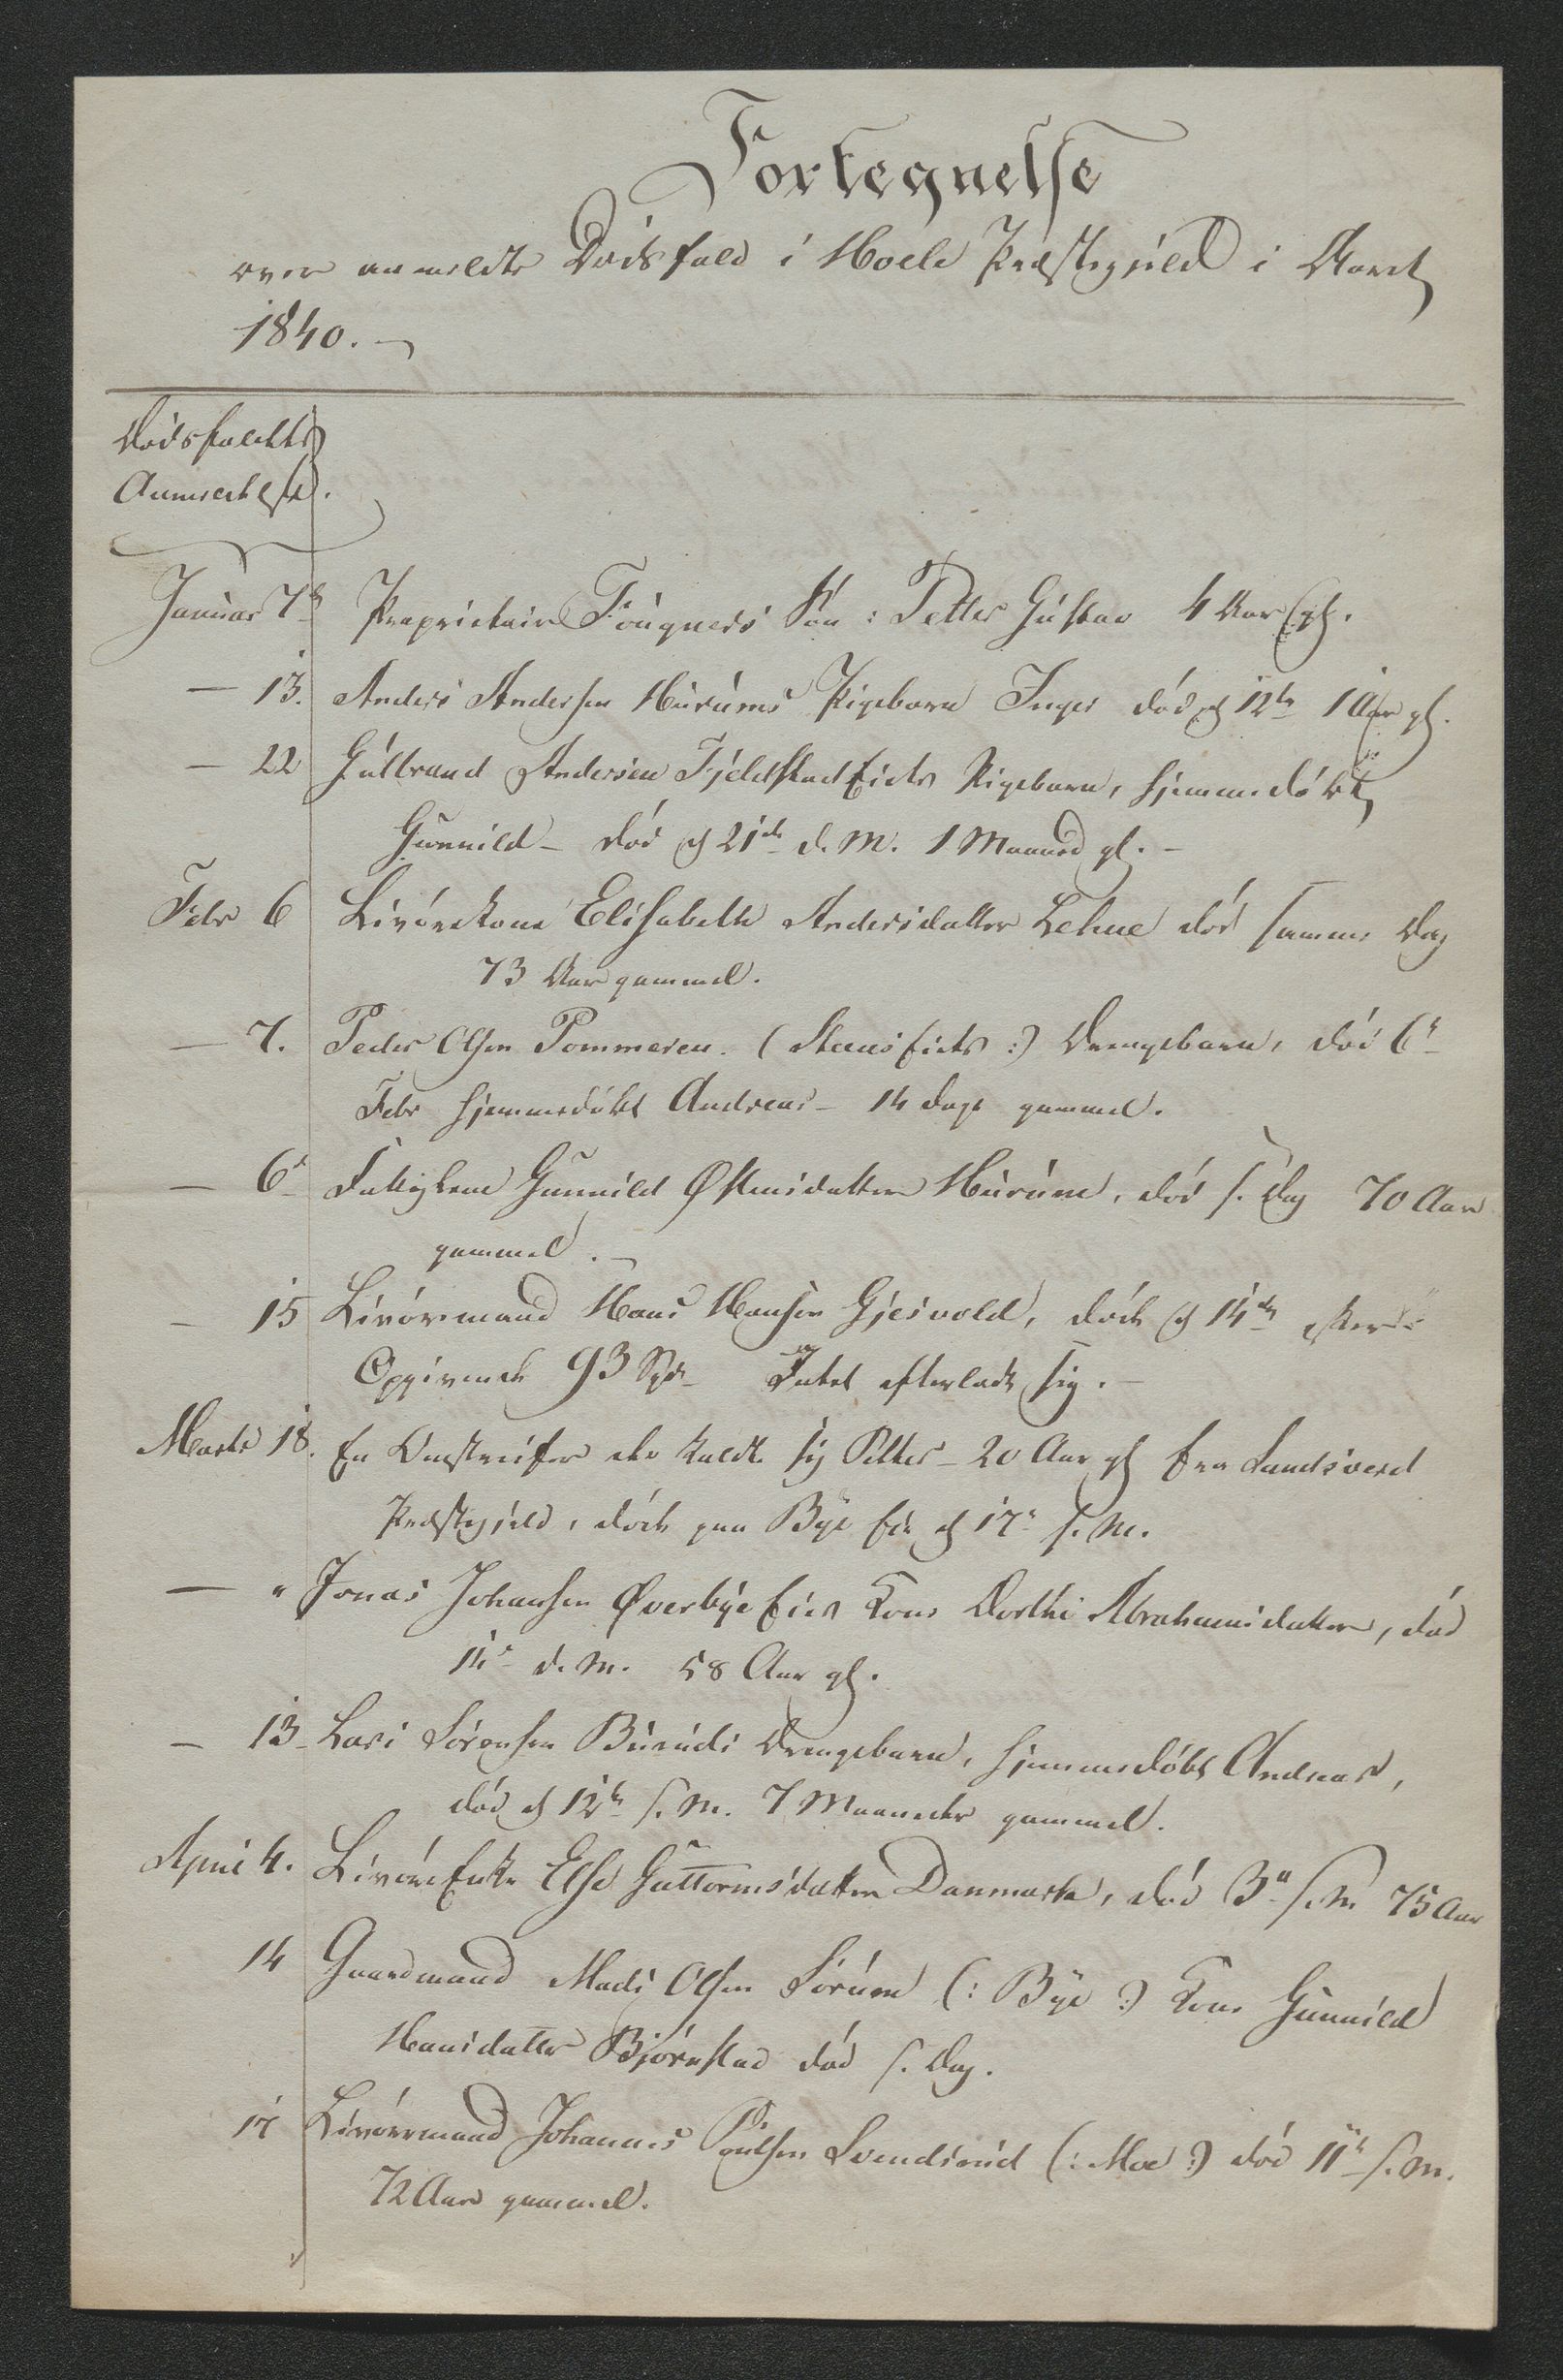 Fortegnelse
over anmeldte Dödsfald i Hoele Præstegjeld i Aaret
1840.
Dödsfaldets
Anmeldelse.
Januar 7de Proprietair Fougners Sön: Petter Gustav 4 Aar gl.
— 13. Anders Andersen Hurums Pigebarn Inger död d 12te 1 Aar gl.
— 22 Gulbrand Andersen Fjeldstad Eiets Pigebarn, hjemmedöbt
Gunnild – död d 21de d. M. 1 Maaned gl. –
Febr 6 Livörekone Elisabeth Andersdatter Lehne död samme Dag
73 Aar gammel.
— 7. Peder Olsen Pommeren. (Steens Eiets :) Drengebarn, död 6te
Febr hjemmedöbt Andreas – 14 Dage gammel.
— 6te Fattiglem Gunnild Østensdatter Hurum, död s. Dag 70 Aar
gammel. –
— 15 Livörmand Hans Hansen Gjesvold, döde d 14de efter
Opgivende 93 Intet efterladt sig. –
Marts 18. En Omstreifer der kaldte sig Petter – 20 Aar gl fra Landsverd
Præstegjeld, döde paa Bye Eie d 17de s. M.
— " Jonas Johansen Øverbye Eies Kone Dorthe Abrahamsdatter, död
14de d. M. 58 Aar gl.
— 13 Lars Sörensen Buruds Drengebarn, hjemmedöbt Andreas,
död d 12te s. M. 7 Maaneder gammel.
April 4. Livöre Enke Else Guttormsdatter Danmark, död 3die s. M 75 Aar
14 Gaardmand Mads Olsen Sörum (: Bye :) Kone Gunnild
Hansdatter Björnstad död s. Dag.
17 Livörmand Johannes Poulsen Svendsrud (: Moe :) död 11te s. M.
72 Aar gammel.